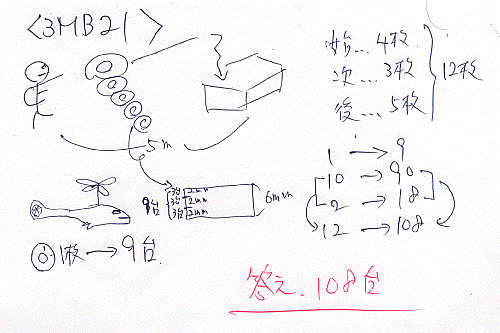 <3MB21>
始…4枚
次…3枚
後…5枚
12枚
5m
1→9
10→90
2→18
12→108
9台
3台 2mm
3台 2mm
3台 2mm
6mm
1枚→9台
答え.108台